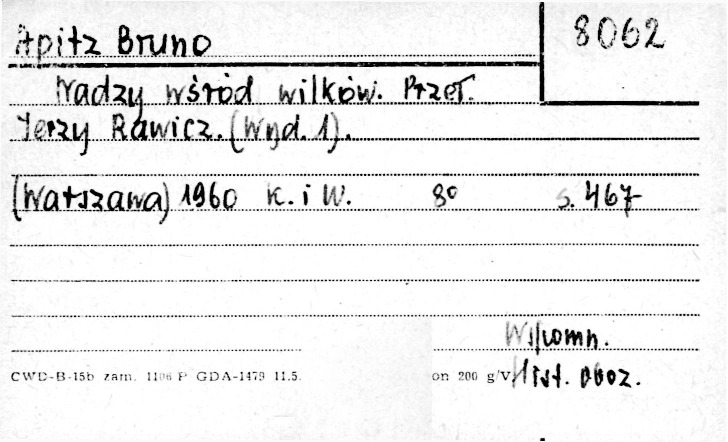 Apitz Bruno
8062
Nadzy wśród wilków. Przeł.
Jerzy Rawicz. (Wyd. 1).
(Warszawa) 1960 K. i W. 8° s. 467
Wspomn.
CWD-B-15b zam. 1106 P GDA-1479 11.5.
on 200 g/V
Hist. oboz.